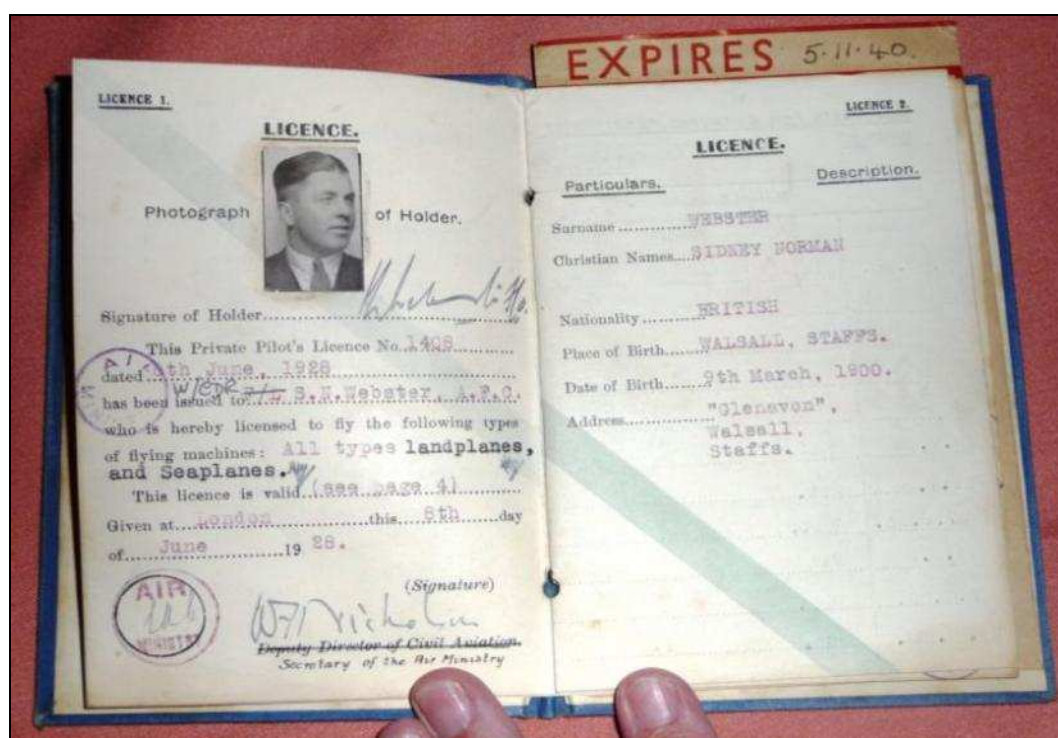 EXPIRES 5·11·40.
LICENCE 1.
LICENCE.
Photograph of Holder.
Signature of Holder
This Private Pilot's Licence No. 1408
dated 8th June, 1928
has been issued to W/CDR F/L S.N.Webster, A.F.C.
who is hereby licensed to fly the following types
of flying machines: All types landplanes,
and Seaplanes.
This licence is valid (see page 4)
Given at London this 8th day
of June 19 28.
(Signature)
AIR
MINISTRY
Deputy Director of Civil Aviation.
Secretary of the Air Ministry
LICENCE 2.
LICENCE.
Particulars. Description.
Surname WEBSTER
Christian Names SIDNEY NORMAN
Nationality BRITISH
Place of Birth WALSALL, STAFFS.
Date of Birth 9th March, 1900.
Address "Glenavon",
Walsall,
Staffs.